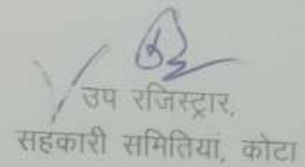 उप रजिस्ट्रार,
सहकारी समितियां, कोटा